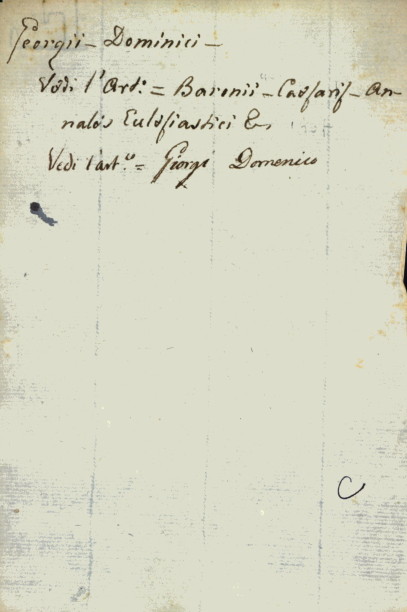 Georgii - Dominici -
Vedi l'Art.o = Baronii - Caesaris - An-
nales Eclesiastici &c
Vedi l'art.o = Giorgi Domenico
C